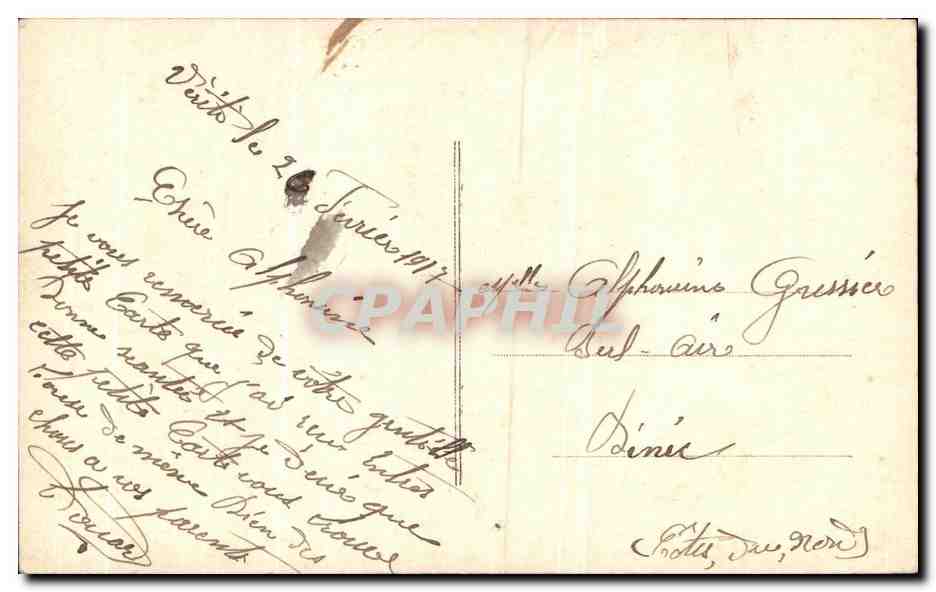 le 2 Février 1917
Chère Alphonsine
Je vous remercie de votre gentille
petite Carte que j'ai reçu
Bonne santée et je
cette petite Carte vous trouve
de même Bien des
choses a vos parents
Melle Alphonsine Gressier
Bel-air
Binic
(Côtes, du, Nord)
CPAPHIL